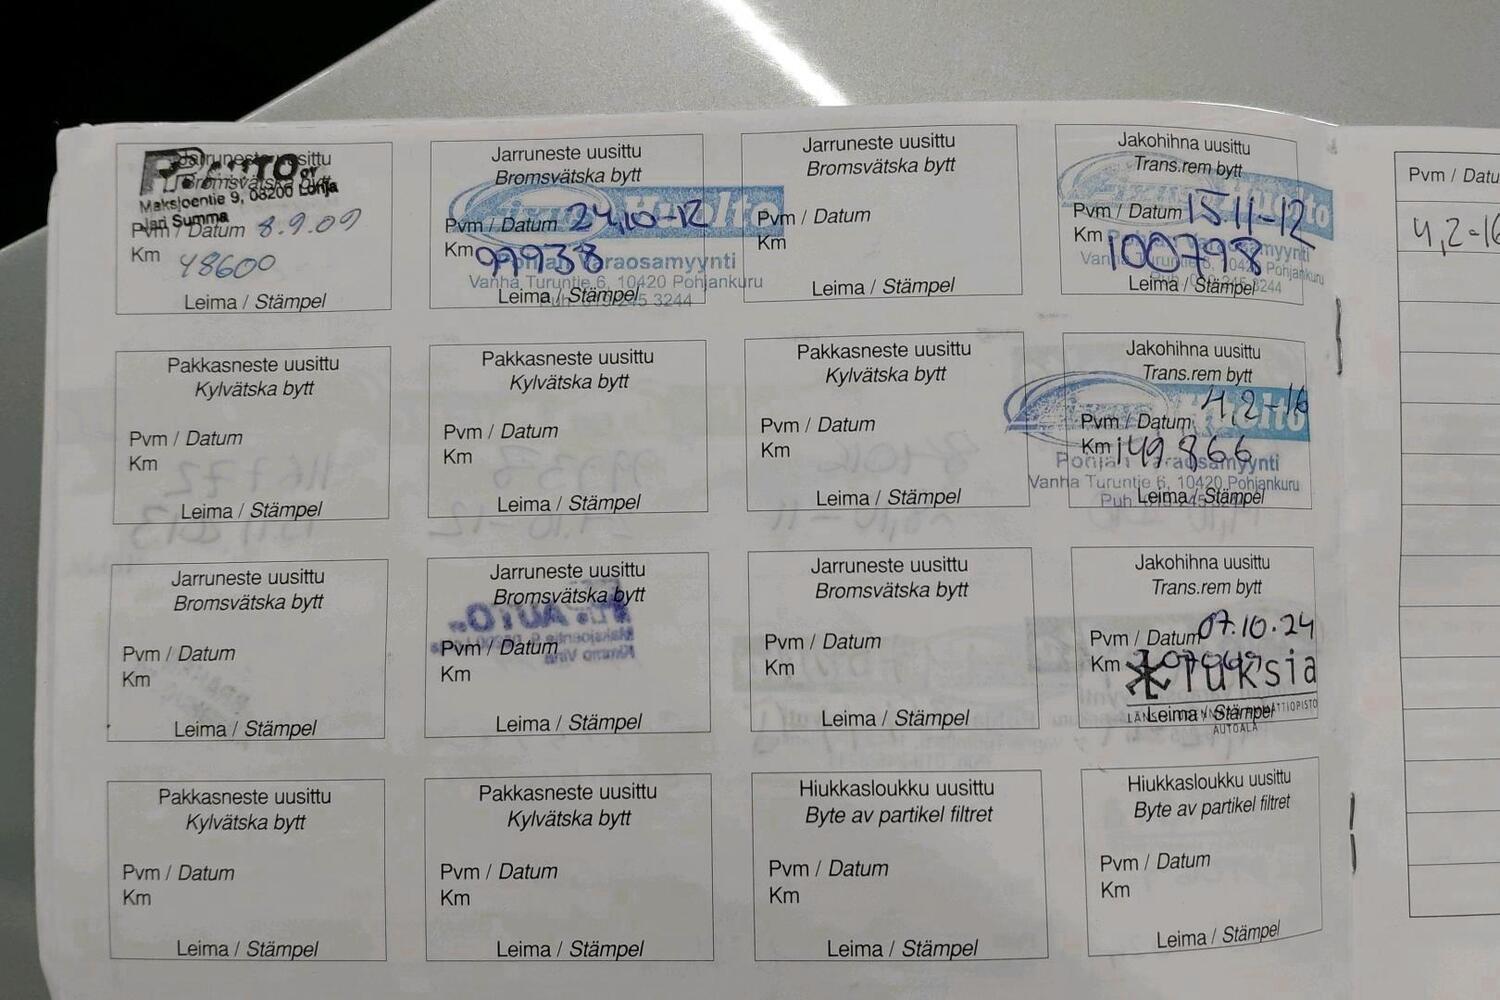 Jarruneste uusittu
Bromsvätska bytt
AUTO OY
Maksjoentie 9, 08200 Lohja
Jari Summa
Pvm / Datum 8.9.09
Km 48600
Leima / Stämpel
Jarruneste uusittu
Bromsvätska bytt
Huolto
Pvm / Datum 24,10-12
Km 99938
Pohjan Varaosamyynti
Vanha Turuntie 6, 10420 Pohjankuru
Leima / Stämpel
Puh. 019-245 3244
Jarruneste uusittu
Bromsvätska bytt
Pvm / Datum
Km
Leima / Stämpel
Jakohihna uusittu
Trans.rem bytt
Huolto
Pvm / Datum 15 11-12
Km 100798
Vanha Turuntie 6, 10420 Pohjankuru
Leima / Stämpel
Pvm / Datu
4,2-16
Pakkasneste uusittu
Kylvätska bytt
Pvm / Datum
Km
Leima / Stämpel
Pakkasneste uusittu
Kylvätska bytt
Pvm / Datum
Km
Leima / Stämpel
Pakkasneste uusittu
Kylvätska bytt
Pvm / Datum
Km
Leima / Stämpel
Jakohihna uusittu
Trans.rem bytt
Huolto
Pvm / Datum 4,2-16
Km 149866
Pohjan Varaosamyynti
Vanha Turuntie 6, 10420 Pohjankuru
Puh. 019-245 3244
Leima / Stämpel
Jarruneste uusittu
Bromsvätska bytt
Pvm / Datum
Km
Leima / Stämpel
Jarruneste uusittu
Bromsvätska bytt
Pvm / Datum
Km
Leima / Stämpel
Jarruneste uusittu
Bromsvätska bytt
Pvm / Datum
Km
Leima / Stämpel
Jakohihna uusittu
Trans.rem bytt
Pvm / Datum 07.10.24
Km
Luksia
Leima / Stämpel
AUTOALA
Pakkasneste uusittu
Kylvätska bytt
Pvm / Datum
Km
Leima / Stämpel
Pakkasneste uusittu
Kylvätska bytt
Pvm / Datum
Km
Leima / Stämpel
Hiukkasloukku uusittu
Byte av partikel filtret
Pvm / Datum
Km
Leima / Stämpel
Hiukkasloukku uusittu
Byte av partikel filtret
Pvm / Datum
Km
Leima / Stämpel